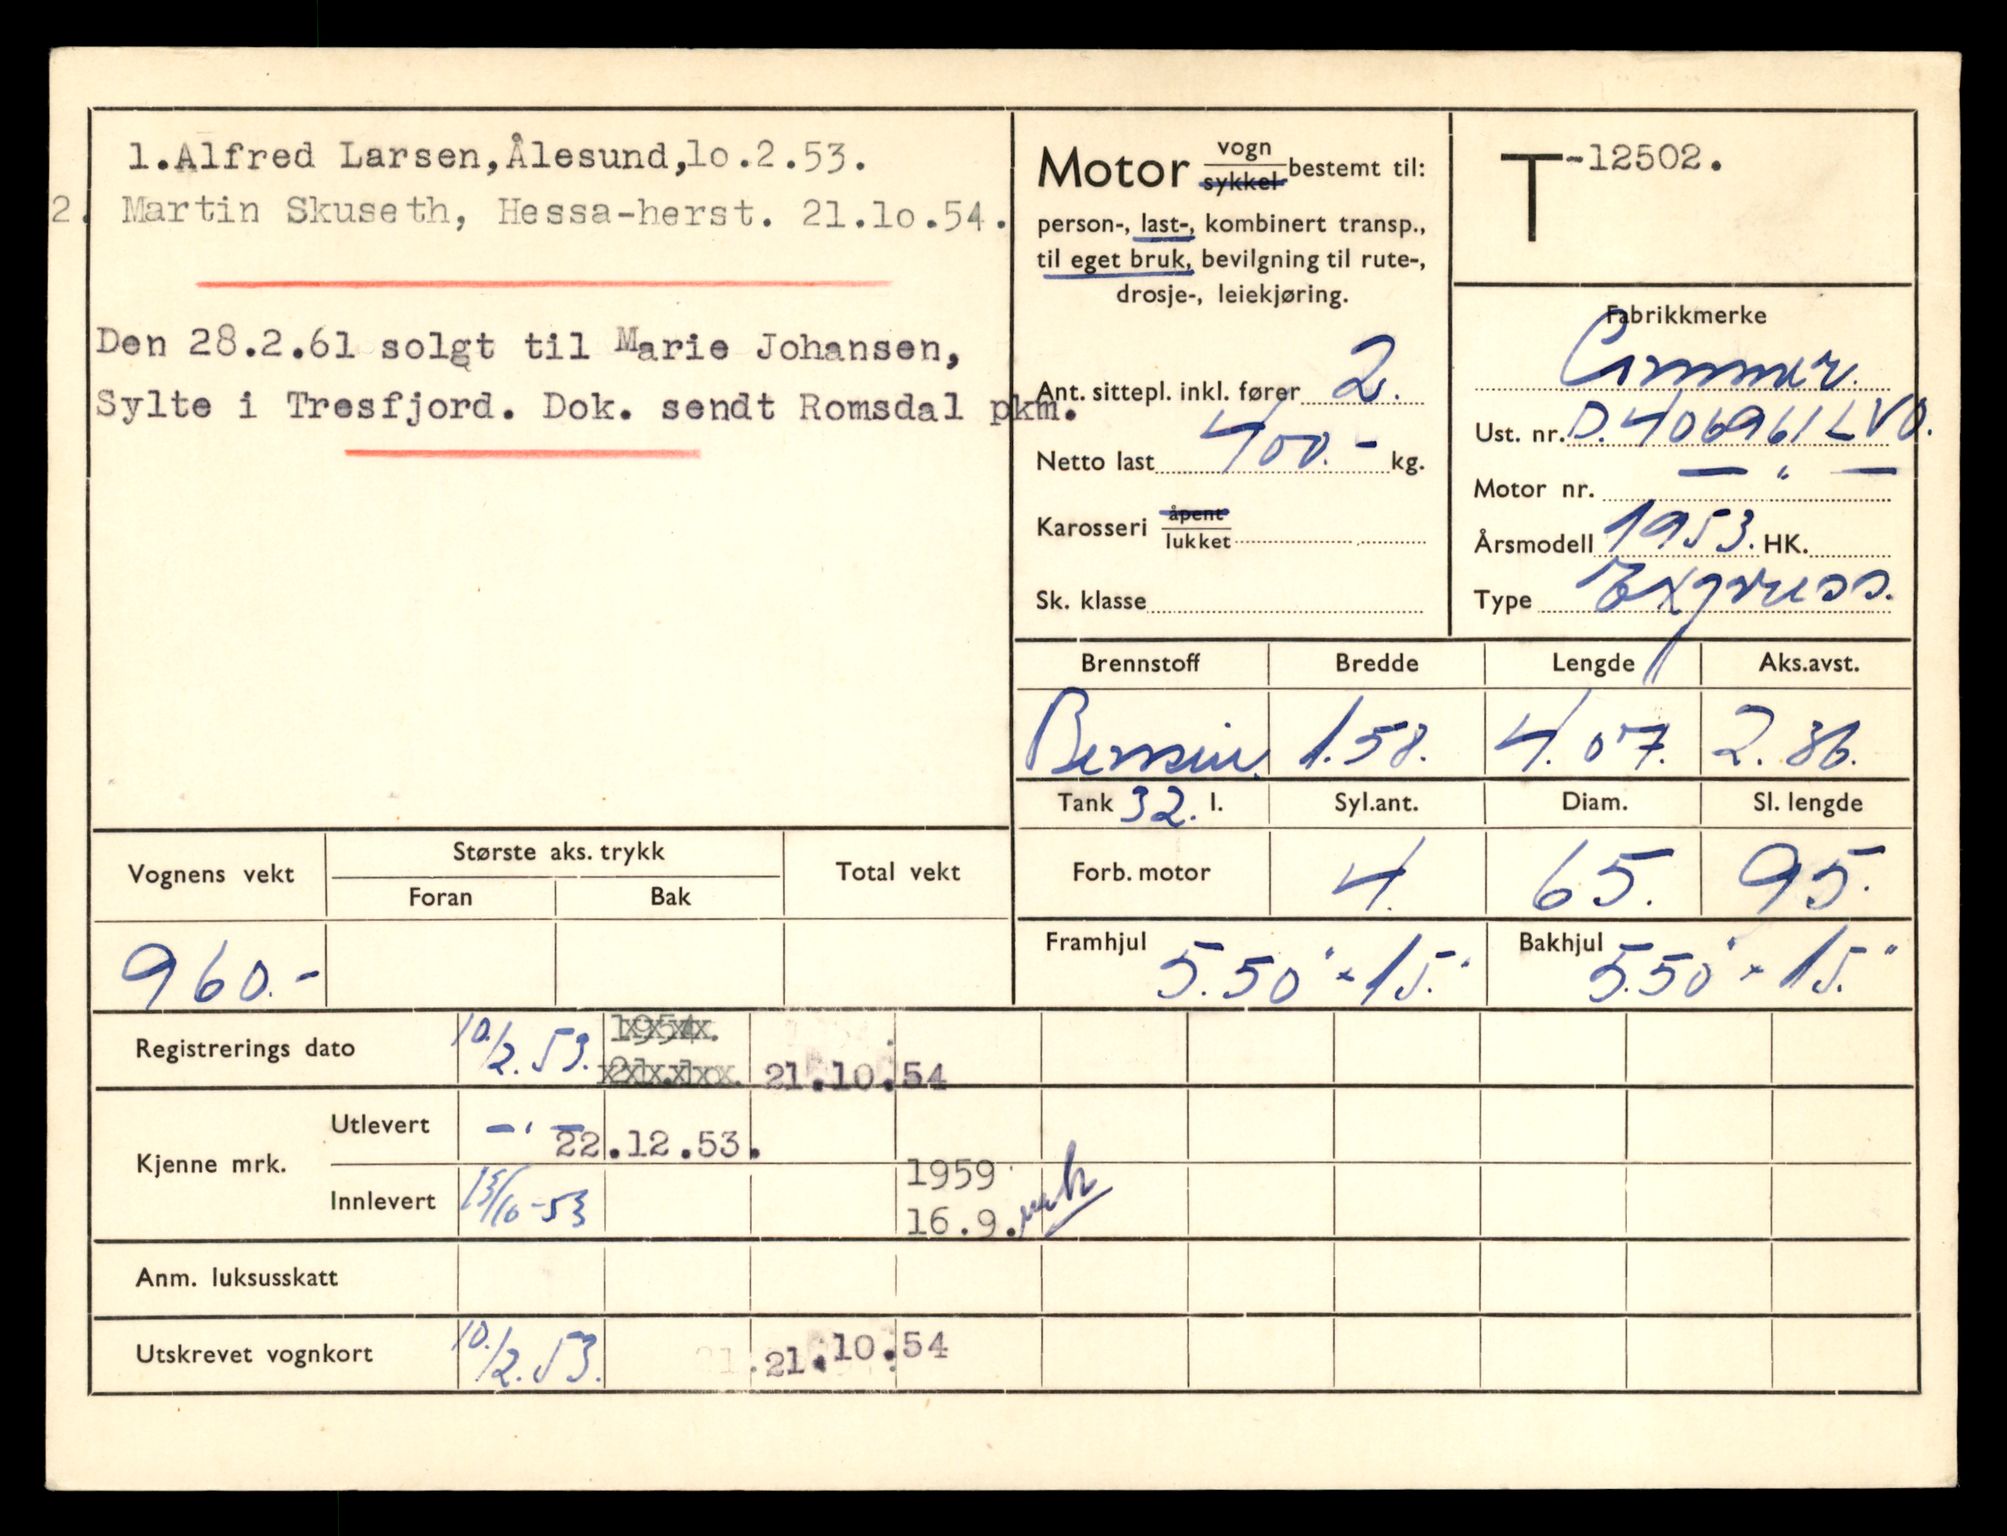 1.Alfred Larsen,Ålesund,lo.2.53.
2. Martin Skuseth, Hessa-herst. 21.lo.54.
Den 28.2.61 solgt til Marie Johansen,
Sylte i Tresfjord. Dok. sendt Romsdal pkm.
Motor vogn sykkel bestemt til:
person-, last-, kombinert transp.,
til eget bruk, bevilgning til rute-,
drosje-, leiekjøring.
Ant. sittepl. inkl. fører 2.
Netto last 400.- kg.
Karosseri åpent lukket
Sk. klasse
T-12502.
Fabrikkmerke
Commer.
Ust. nr. D.406961LVO.
Motor nr. — " —
Årsmodell 1953. HK.
Type Express.
Brennstoff Bredde Lengde Aks.avst.
Bensin. 1.58. 4.07. 2.86.
Tank 32. l. Syl.ant. Diam. Sl. lengde
Forb. motor 4. 65. 95.
Framhjul 5.50" × 15." Bakhjul 5.50" × 15."
Vognens vekt Største aks. trykk Total vekt
Foran Bak
960.-
Registrerings dato 10./2. 53. 1954. 21.10.54
Kjenne mrk. Utlevert — " — 22.12.53.
Innlevert 13/10-53 1959 16.9.
Anm. luksusskatt
Utskrevet vognkort 10./2. 53. 21.10.54